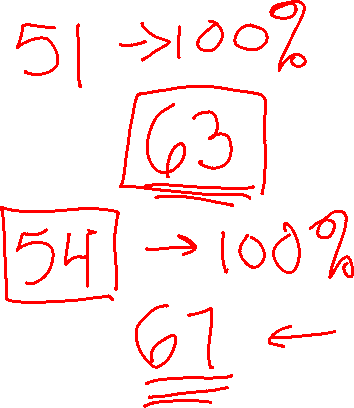 51 → 100%
63
54 → 100%
67 ←